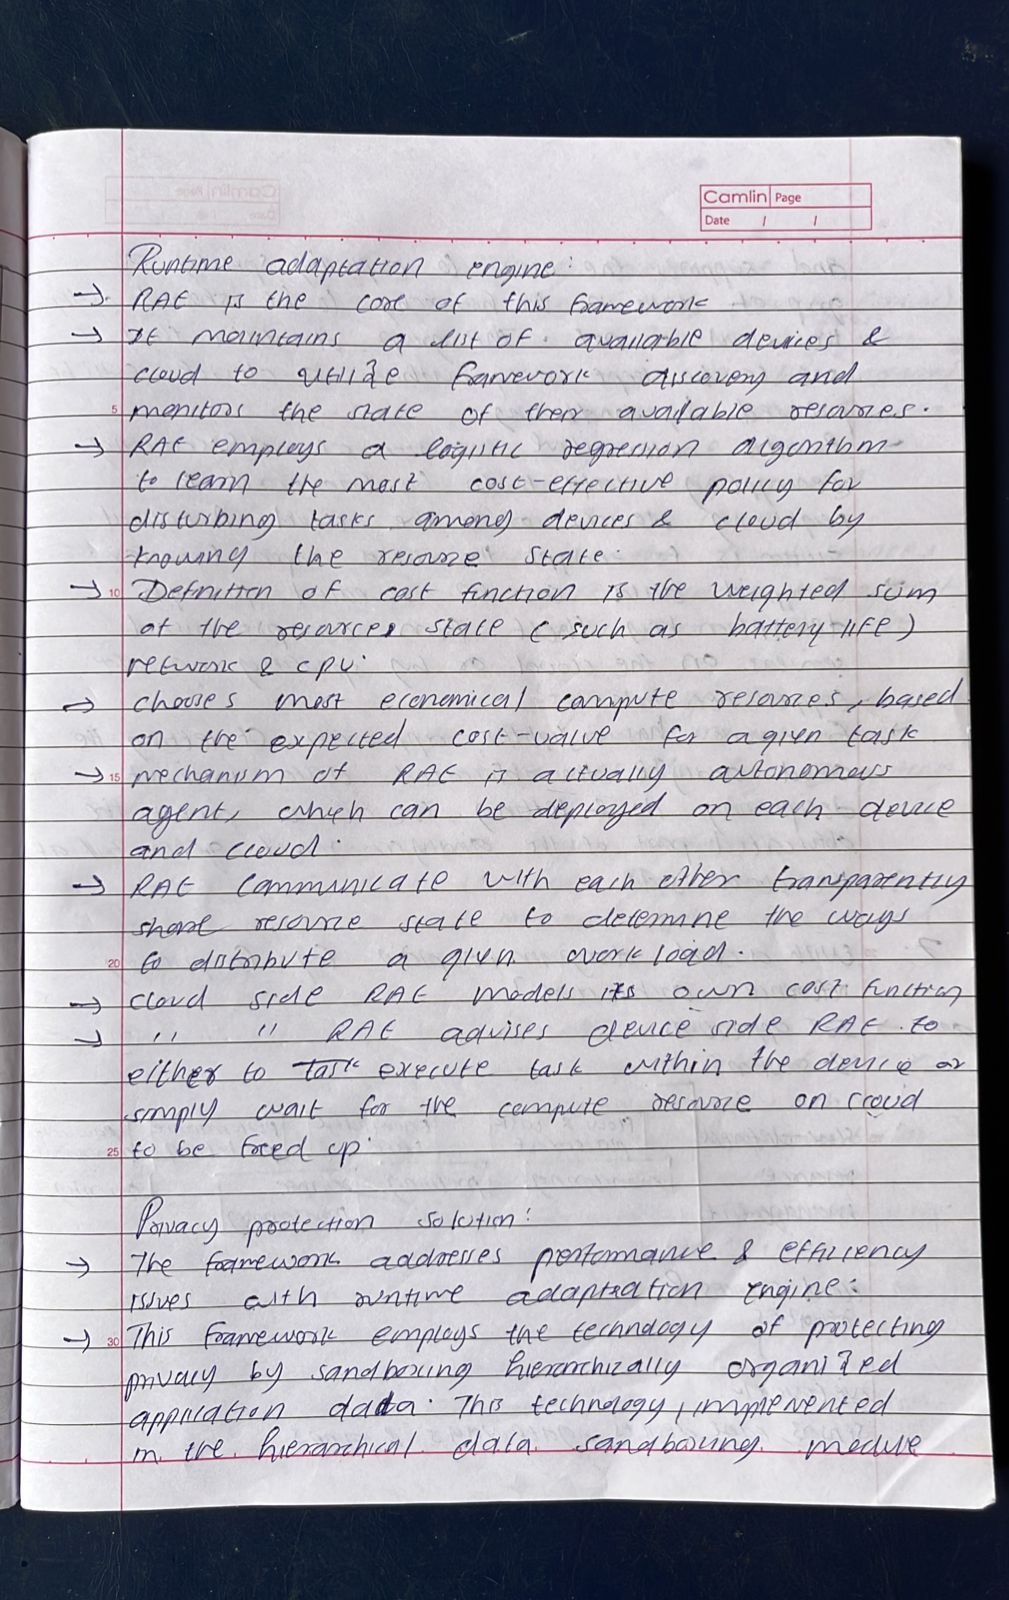 Camlin Page
Date / /
Runtime adaptation engine:
→ RAE is the core of this framework
→ It maintains a list of available devices &
cloud to utilize framework discovery and
5 monitors the state of their available resources.
→ RAE employs a logistic regression algorithm
to learn the most cost-effective policy for
disturbing tasks among devices & cloud by
knowing the resource state.
→ 10 Definition of cost function is the weighted sum
of the resources state (such as battery life)
network & cpu.
→ chooses most economical compute resources, based
on the expected cost-value for a given task
→ 15 mechanism of RAE is actually autonomous
agent, which can be deployed on each device
and cloud.
→ RAE communicate with each other transparently
share resource state to determine the ways
20 to distribute a given work load.
→ cloud side RAE models its own cost function
→ " " RAE advises device side RAE to
either to execute task within the device or
simply wait for the compute resource on cloud
25 to be freed up.
Privacy protection solution:
→ The framework addresses performance & efficiency
issues with runtime adaptation engine.
→ 30 This framework employs the technology of protecting
privacy by sandboxing hierarchically organized
application data. This technology, implemented
in the hierarchical data sandboxing module